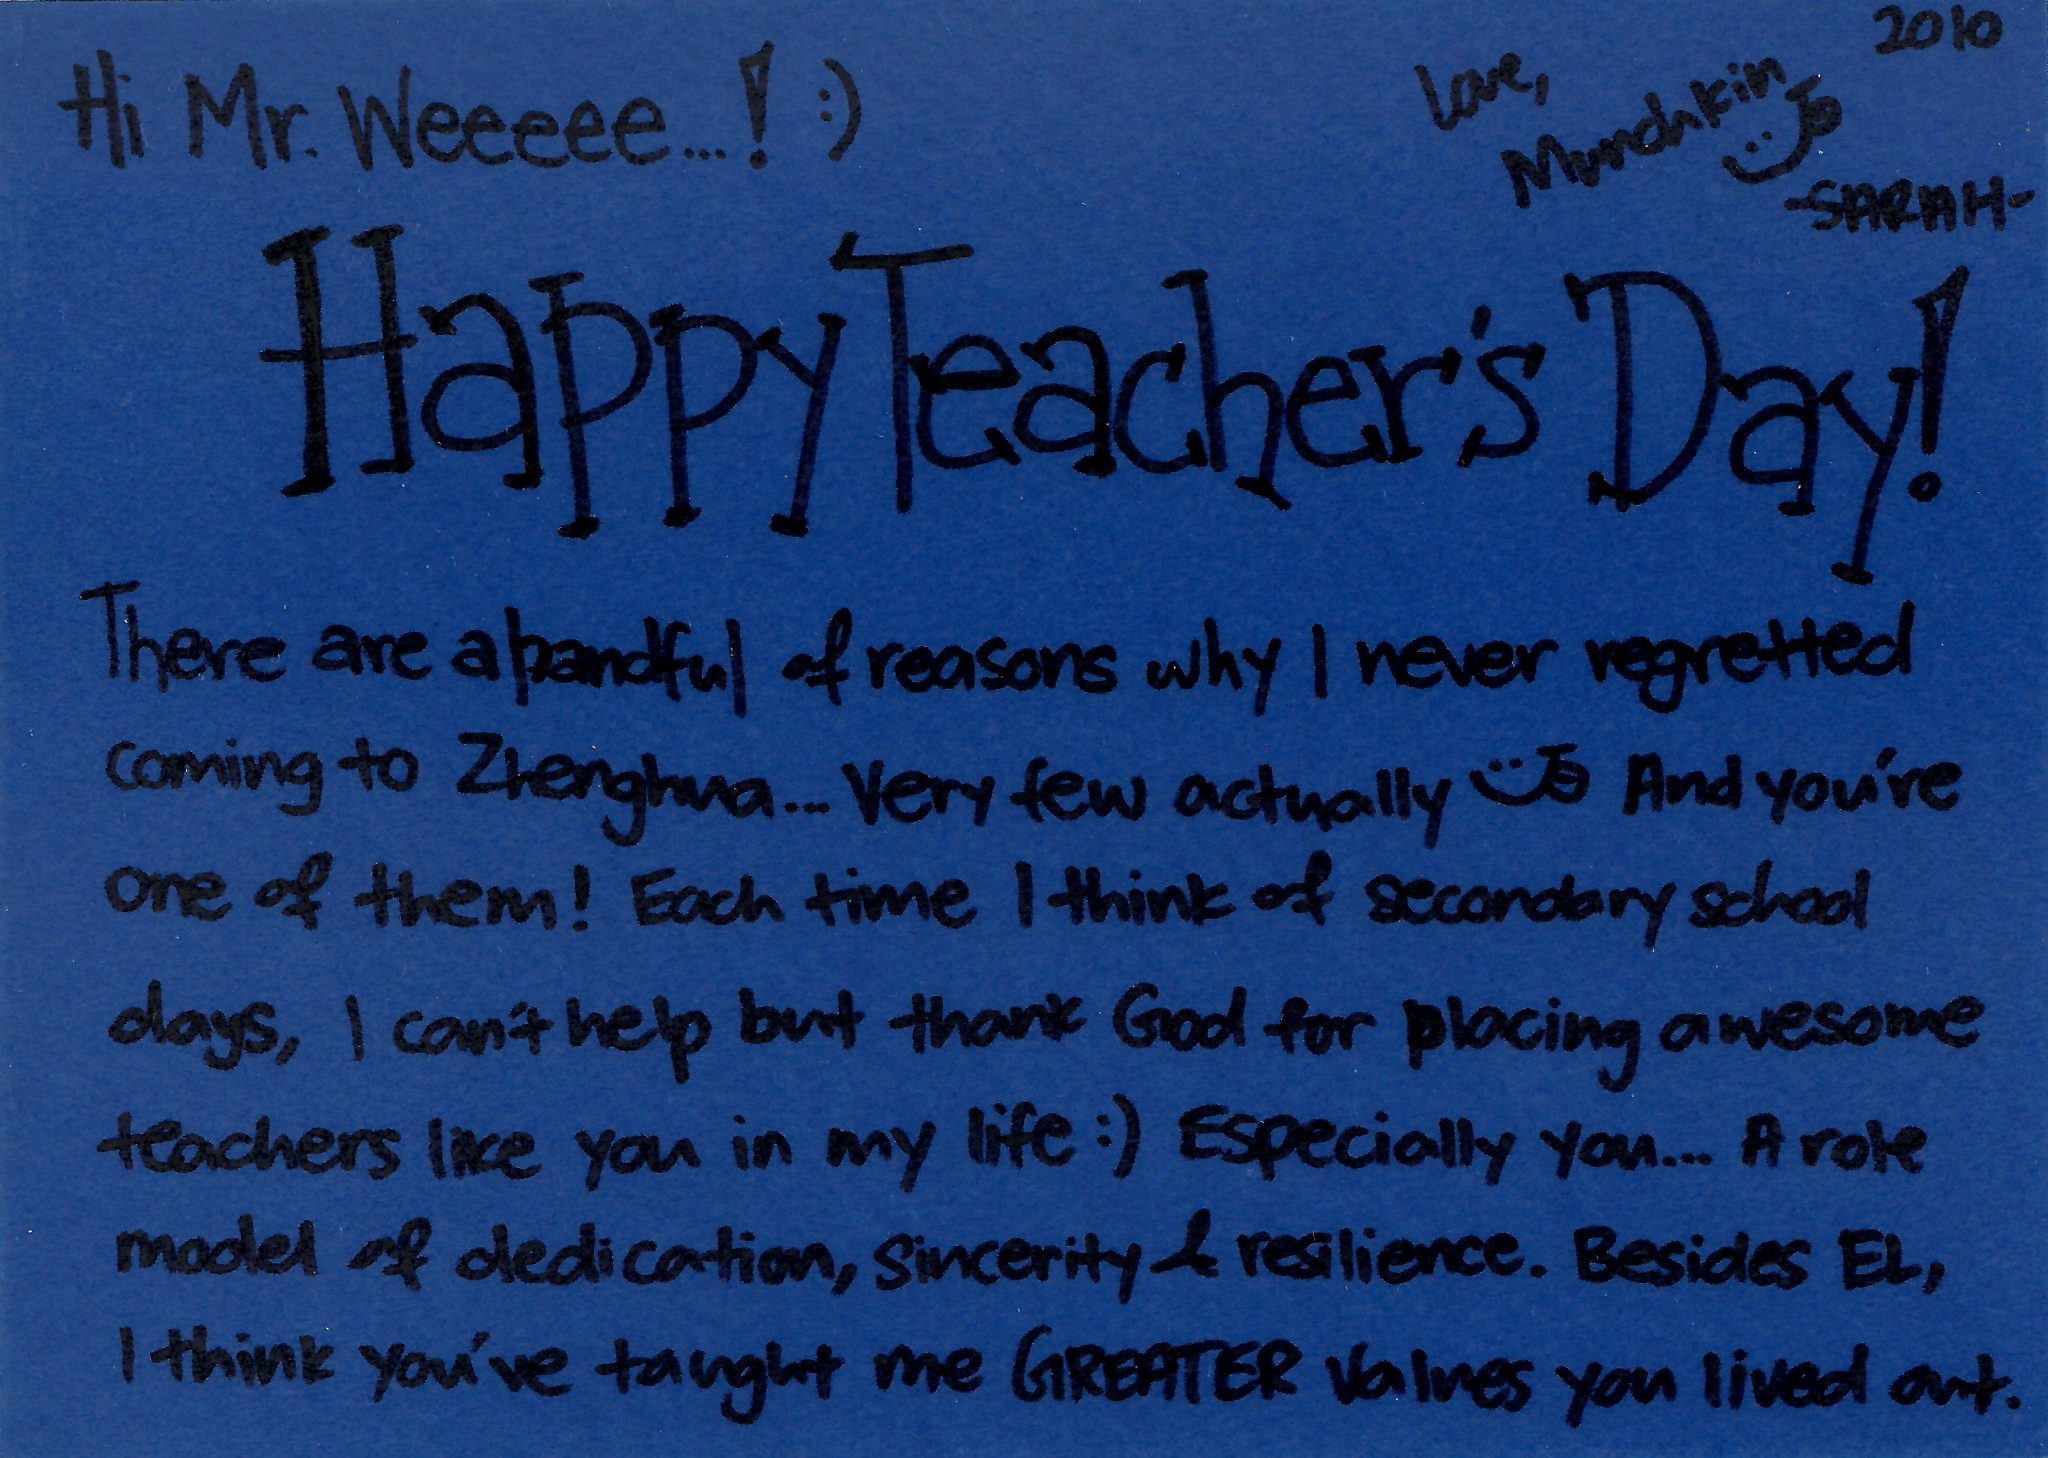 2010
Hi Mr. Weeeee...! :)
Love,
Munchkin
-SARAH-
Happy Teacher's Day!
There are a handful of reasons why I never regretted
coming to Zhenghua... Very few actually And you're
one of them! Each time I think of secondary school
days, I can't help but thank God for placing awesome
teachers like you in my life :) Especially you... A role
model of dedication, sincerity & resilience. Besides EL,
I think you've taught me GREATER values you lived out.